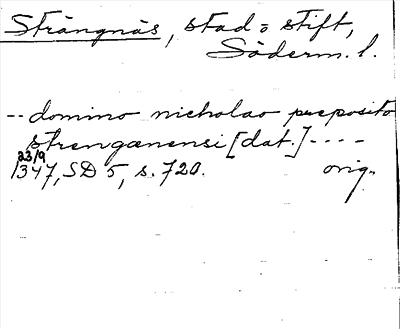 Strängnäs, stad o stift,
Söderm. l.
-- domino nicholao preposito
strengænensi [dat.] ----
23/9
1347, SD 5, s. 720. orig.